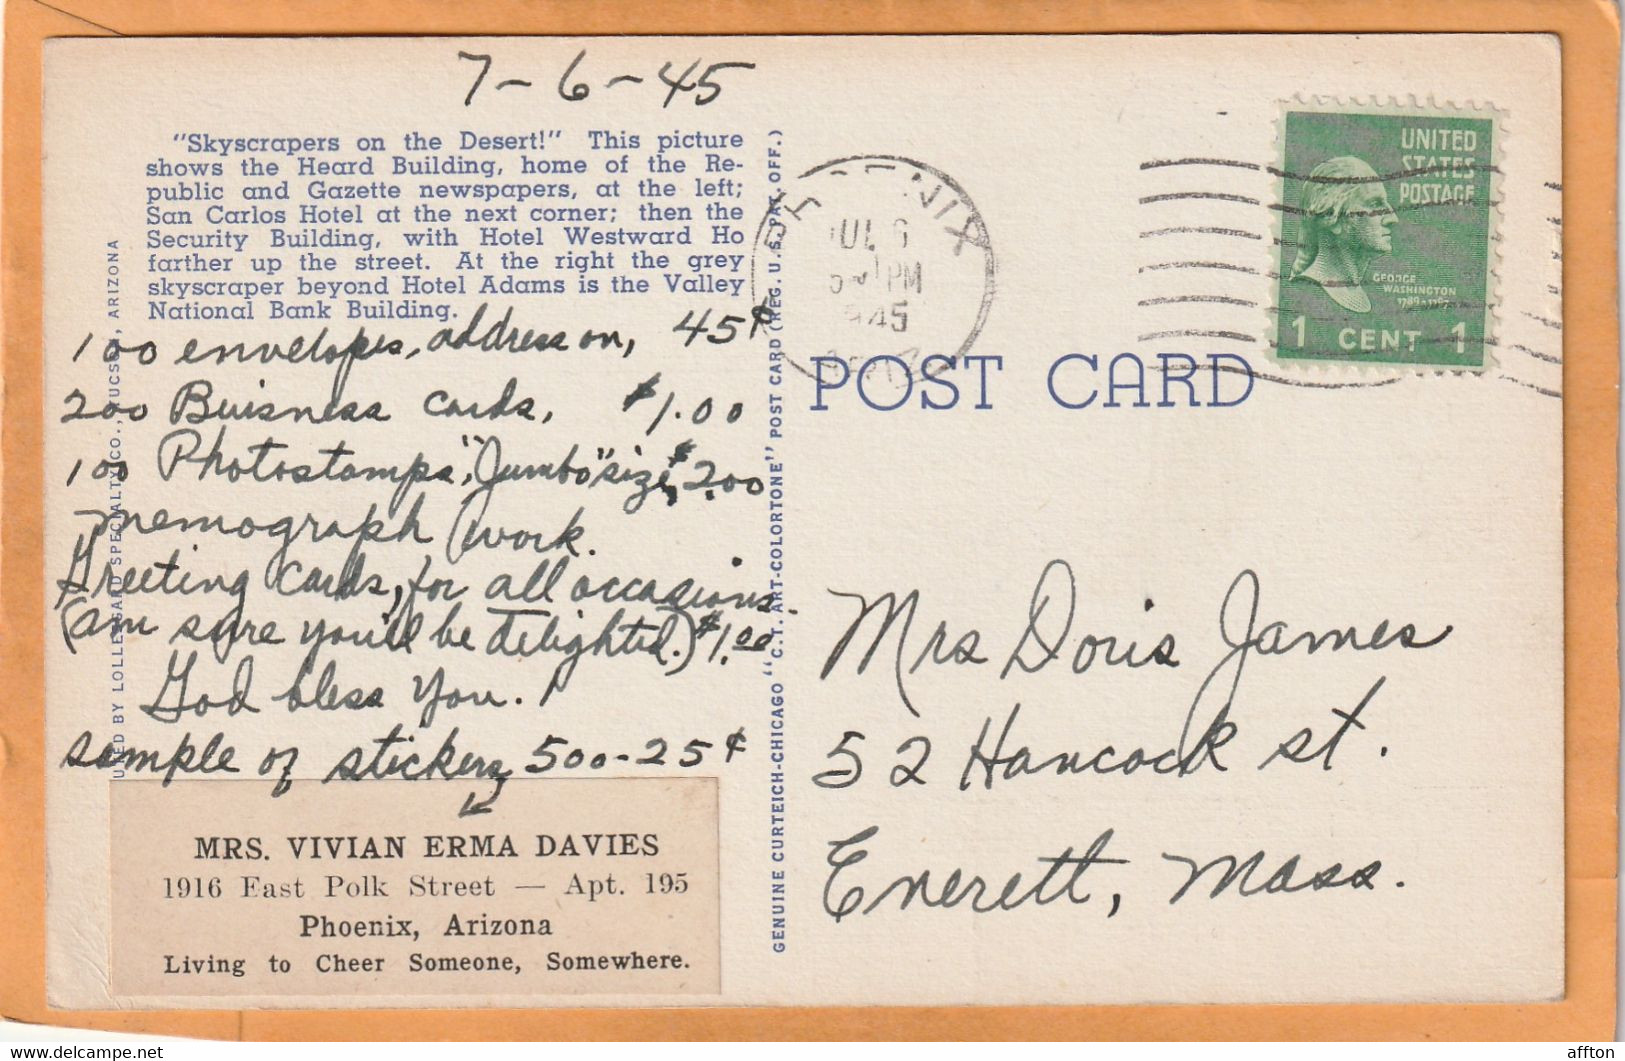 7-6-45
"Skyscrapers on the Desert!" This picture
shows the Heard Building, home of the Re-
public and Gazette newspapers, at the left;
San Carlos Hotel at the next corner; then the
Security Building, with Hotel Westward Ho
farther up the street. At the right the grey
skyscraper beyond Hotel Adams is the Valley
National Bank Building.
100 envelopes, address on, 45¢
200 Buisness cards, $1.00
100 Photostamps, "Jumbo" size, $2.00
memograph work.
Greeting cards, for all occasions.
(am sure you'll be delighted.) $1.00
God bless you.
sample of stickers 500-25¢
MRS. VIVIAN ERMA DAVIES
1916 East Polk Street — Apt. 195
Phoenix, Arizona
Living to Cheer Someone, Somewhere.
GENUINE CURTEICH-CHICAGO "C.T. ART-COLORTONE" POST CARD (REG. U.S. PAT. OFF.)
POST CARD
UNITED
STATES
POSTAGE
GEORGE
WASHINGTON
1789-1797
1 CENT 1
Mrs Doris James
52 Hancock st.
Everett, Mass.
affton